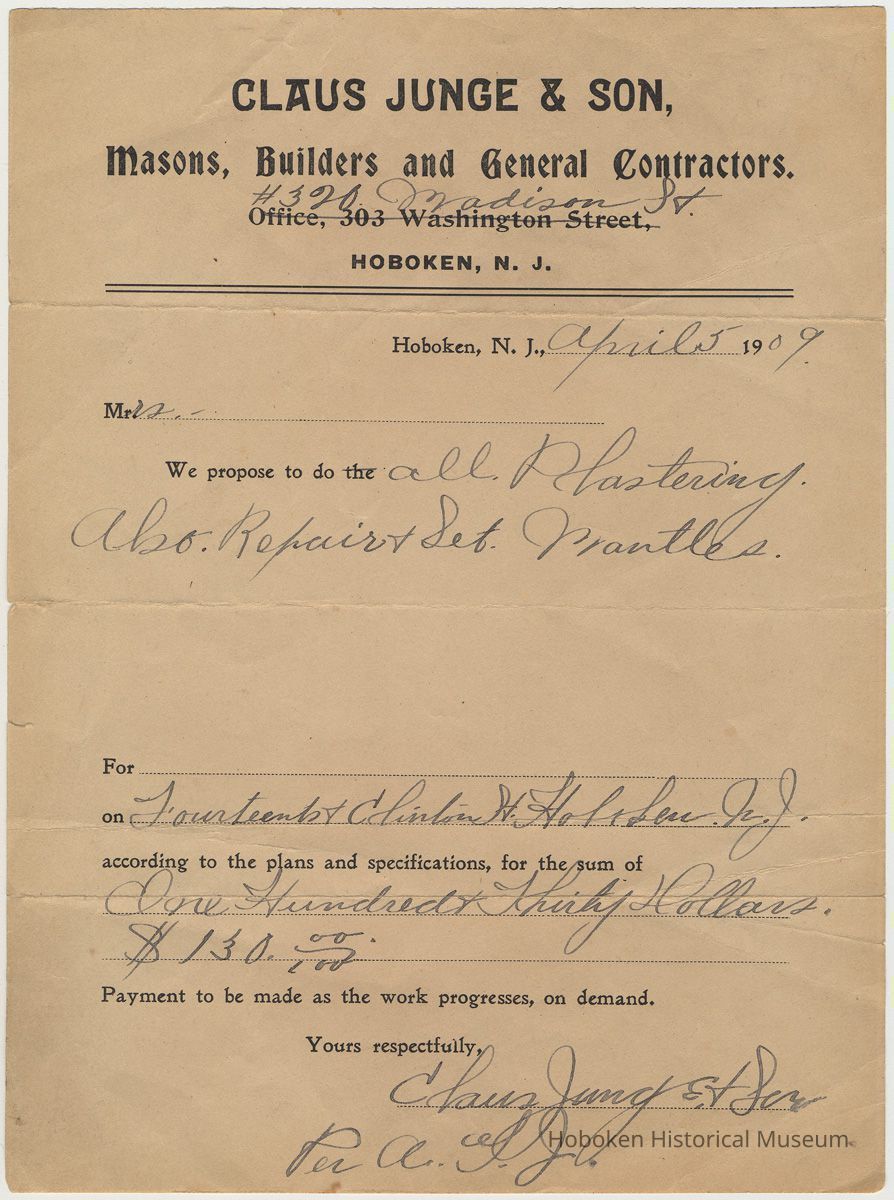 CLAUS JUNGE & SON,
Masons, Builders and General Contractors.
#320. Madison St.
Office, 303 Washington Street,
HOBOKEN, N. J.
Hoboken, N. J., April 5 1909.
Mrs. -
We propose to do the all. Plastering.
Also. Repair & Set. Mantles.
For
on Fourteenth & Clinton St. Hoboken. N. J.
according to the plans and specifications, for the sum of
One Hundred & Thirty Dollars.
$130. 00/100.
Payment to be made as the work progresses, on demand.
Yours respectfully,
Claus Junge & Son
Per A. J.
Hoboken Historical Museum